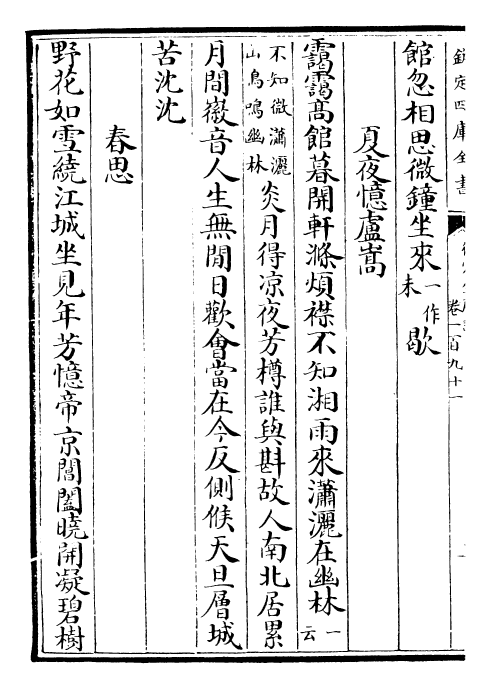 欽定四庫全書
卷一百九十一
館忽相思微鐘坐來一作未歇
夏夜憶盧嵩
靄靄高館暮開軒滌煩襟不知湘雨來瀟灑在幽林一云
不知微瀟灑山鳥鳴幽林炎月得凉夜芳樽誰與斟故人南北居累
月間徽音人生無閒日歡會當在今反側候天旦層城
苦沈沈
春思
野花如雪繞江城坐見年芳憶帝京閶闔曉開凝碧樹